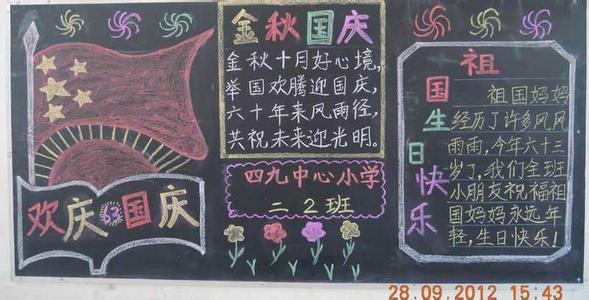 欢庆国庆
金秋国庆
金秋十月好心境,
举国欢腾迎国庆,
六十年来风雨径,
共祝未来迎光明。
四九中心小学
二2班
祖
国
生
日
快
乐
祖国妈妈
经历了许多风风
雨雨,今年六十三
岁了,我们全班
小朋友祝福祖
国妈妈永远年
轻,生日快乐!
28.09.2012 15:43